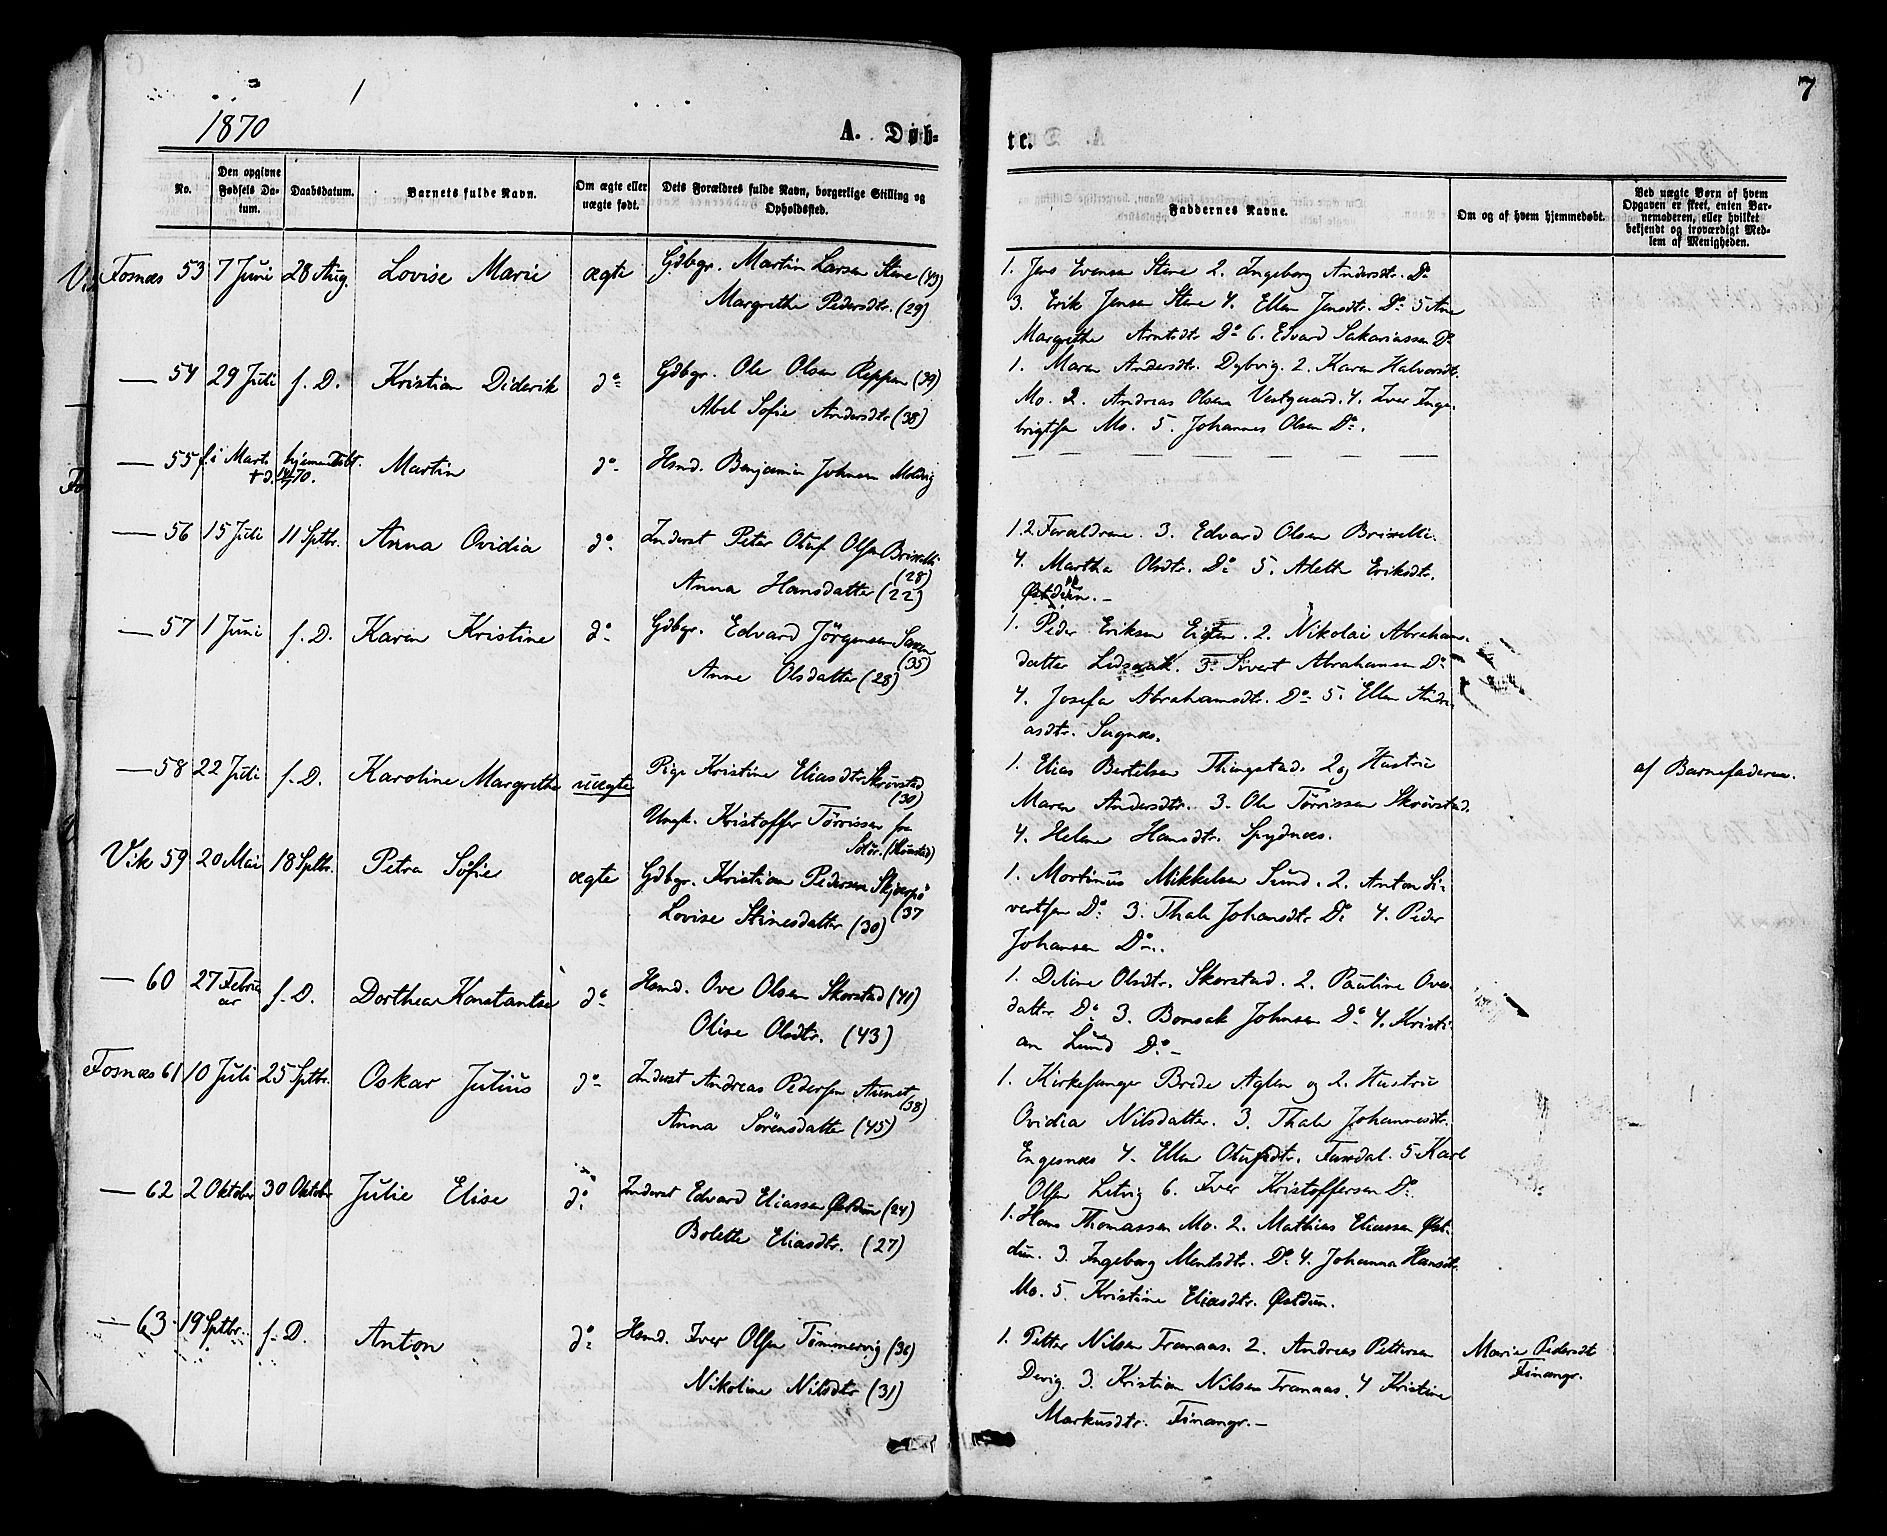 7
1870
A. Døb-
te.
No.
Den opgivne Fødsels Da-tum.
Daabsdatum.
Barnets fulde Navn.
Om ægte eller uægte født.
Dets Forældres fulde Navn, borgerlige Stilling og Opholdssted.
Faddernes Navne.
Om og af hvem hjemmedøbt.
Ved uægte Børn af hvem Opgaven er skeet, enten Bar-nemoderen, eller hvilket bekjendt og troværdigt Med-lem af Menigheden.
Fosnæs 53 7 Juni 28 Aug. Lovise Marie ægte Gdbgr. Martin Larsen Stene (43)
Margrethe Pedersdtr. (29)
1. Jens Evensen Stene 2. Ingeborg Andersdtr. Do
3. Erik Jensen Stene 4. Ellen Jensdtr. Do 5 Ane
Margrethe Arntsdtr. Do 6. Edvard Sakariassen Do
— 54 29 Juli f. D. Kristian Diderik do Gdbgr. Ole Olsen Reppen (39)
Abel Sofie Andersdtr (38)
1. Maren Andersdtr. Dybvig. 2. Karen Halvorsdtr.
Mo. 2. Andreas Olsen Vestgaard. 4. Iver Inge-
brigtsen Mo. 5. Johannes Olsen Do.
— 55 f. i Marts hjemmedøbt. Martin do Hsmd. Benjamin Johnsen Moldvig
† d. 14/7 70.
— 56 15 Juli 11 Sptbr. Anna Ovidia do Inderst Peter Oluf Olsen Briselli
(28)
Anna Hansdatter (22)
1.2 Forældrene. 3. Edvard Olsen Briselli.
4. Martha Olsdtr. Do 5. Aleth Eriksdtr.
Østduun.—
— 57 1 Juni f. D. Karen Kristine do Gdbgr. Edvard Jörgensen Saxen
(35)
Anne Olsdatter (28)
1. Peder Eriksen. 2. Nikolai Abraham-
datter 3. Sivert Abrahamsen Do
4. Josefa Abrahamsdtr. Do 5. Ellen Andre-
asdtr. Sagnæs.
— 58 22 Juli f. D. Karoline Margrethe uægte Pige Kristine Eliasdtr. Skrøvstad
(30)
Ungk. Kristoffer Törrissen fra
1. Elias Bertelsen Thingstad. 2 og Hustru
Maren Andersdtr. 3. Ole Törrissen Skrøvstad.
4. Helene Hansdtr. Spydnæs.
af Barnefaderen.
Vik 59 20 Mai 18 Sptbr. Petra Söfie ægte Gdbgr. Kristian Pedersen Skjærpö
(37
Lovise Stinesdatter (30)
1. Mortinus Mikkelsen Lund. 2. Anton Si-
vertsen Do 3. Thale Johansdtr. Do 4. Peder
Johansen Do.
— 60 27 Februar f. D. Dorthea Konstantse do Hsmd. Ove Olsen Skorstad (41)
Olise Olsdtr. (43)
1. Deline Olsdtr. Skorstad. 2. Pauline Oves-
datter Do 3. Bonsak Johnsen Do 4. Kristi-
an Lund Do—
Fosnæs 61 10 Juli 25 Sptbr. Oskar Julius do Inderst Andreas Pedersen Aunet
(38)
Anna Sörensdatter (45)
1. Kirkesanger Brede Aglen og 2. Hustru
Ovidia Nilsdatter. 3. Thale Johannesdtr.
Engesnæs 4. Ellen Olufsdtr. Faxdal. 5 Karl
Olsen Letvig 6. Iver Kristoffersen Do
— 62 2 Oktober 30 Oktober Julie Elise do Inderst Edvard Eliassen Østduun (24)
Bolette Eliasdtr. (27)
1. Hans Thomassen Mo. 2. Mathias Eliassen Øst-
duun. 3. Ingeborg Mentsdtr. Do 4. Johanna Hansdtr.
Mo. 5. Kristine Eliasdtr. Østduun.
— 63 19 Sptbr. f. D. Anton do Hsmd. Iver Olsen Tömmervig (36)
Nikoline Nilsdtr (31)
1. Petter Nilsen Tranaas. 2. Andreas Pettersen
Devig. 3. Kristian Nilsen Tranaas. 4 Kristine
Markusdtr. Finangr.—
Marie Pedersdt
Finangr.